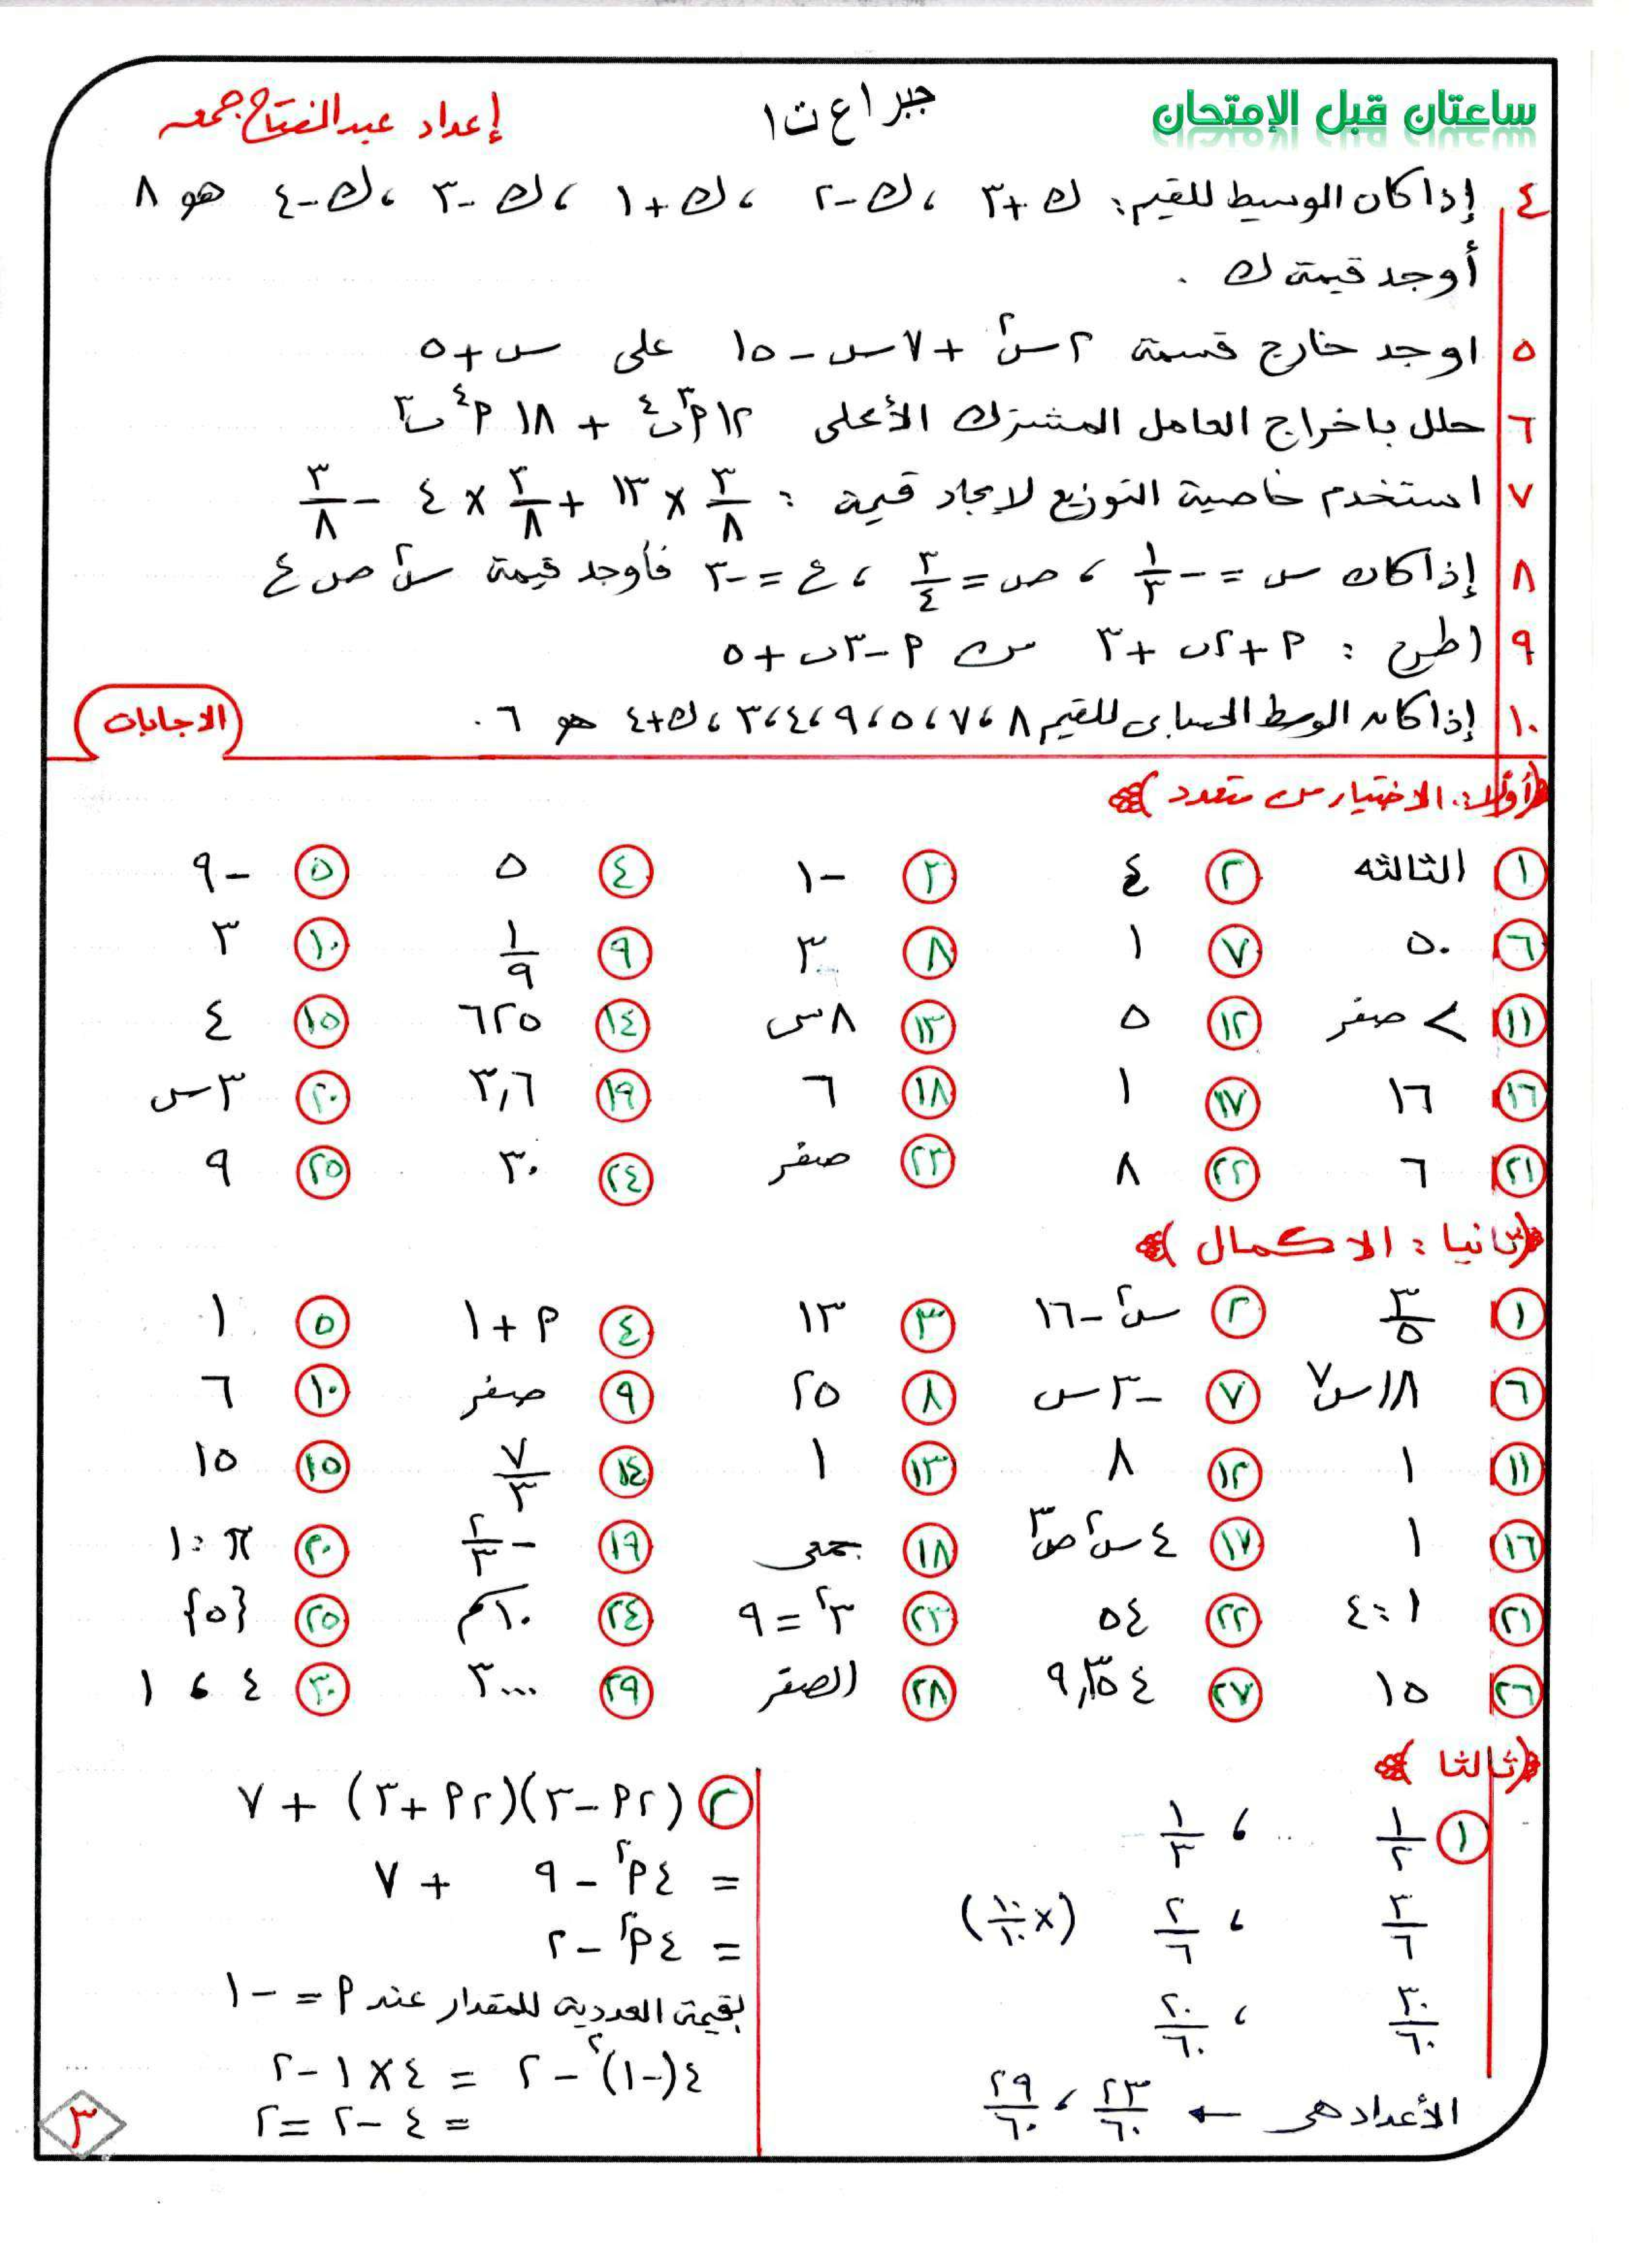 ساعتان قبل الإمتحان
جبر ١ ع ت ١
إعداد عبدالفتاح جمعه
٤ إذا كان الوسيط للقيم: ك + ٣ ، ك - ٢ ، ك + ١ ، ك - ٣ ، ك - ٤ هو ٨
أوجد قيمة ك .
٥ اوجد خارج قسمة ٢س٢ + ٧س - ١٥ على س + ٥
٦ حلل باخراج العامل المشترك الأعلى ١٢ م٣ ب٤ + ١٨ م٤ ب٣
٧ استخدم خاصية التوزيع لإيجاد قيمة : ٣/٨ × ١٣ + ٣/٨ × ٤ - ٣/٨
٨ إذا كان س = - ١/٣ ، ص = ٣/٤ ، ع = - ٣ فأوجد قيمة س٢ ص ع
٩ اطرح : م + ٢ب + ٣ من م - ٣ب + ٥
١٠ إذا كان الوسط الحسابى للقيم ٨ ، ٧ ، ٥ ، ٩ ، ٤ ، ٣ ، ك + ٤ هو ٦ .
الاجابات
أولا: الاختيار من متعدد
١ الثالثه ٢ ٤ ٣ - ١ ٤ ٥ ٥ - ٩
٦ ٥٠ ٧ ١ ٨ ٣ ٩ ١/٩ ١٠ ٣
١١ > صفر ١٢ ٥ ١٣ ٨س ١٤ ٦٢٥ ١٥ ٤
١٦ ١٦ ١٧ ١ ١٨ ٦ ١٩ ٣,٦ ٢٠ ٣س
٢١ ٦ ٢٢ ٨ ٢٣ صفر ٢٤ ٣٠ ٢٥ ٩
ثانيا : الاكمال
١ ٣/٥ ٢ س٢ - ١٦ ٣ ١٣ ٤ م + ١ ٥ ١
٦ ١٨س٧ ٧ - ٣س ٨ ٢٥ ٩ صفر ١٠ ٦
١١ ١ ١٢ ٨ ١٣ ١ ١٤ ٧/٣ ١٥ ١٥
١٦ ١ ١٧ ٤س٢ ص٣ ١٨ جمعى ١٩ - ٢/٣ ٢٠ π : ١
٢١ ١ : ٤ ٢٢ ٥٤ ٢٣ ٣٢ = ٩ ٢٤ ١٠ م ٢٥ {٥}
٢٦ ١٥ ٢٧ ٢٨ الصفر ٢٩ ٣٠٠٠ ٣٠ ٤ ، ١
ثالثا
١ ١/٢ ، ١/٣
٣/٦ ، ٢/٦ (× ١٠/١٠)
٣٠/٦٠ ، ٢٠/٦٠
الأعداد هى ← ٢٣/٦٠ ، ٢٩/٦٠
٢ (٢م - ٣)(٢م + ٣) + ٧
= ٤م٢ - ٩ + ٧
= ٤م٢ - ٢
القيمة العددية للمقدار عند م = - ١
٤(-١)٢ - ٢ = ٤ × ١ - ٢
= ٤ - ٢ = ٢
٣